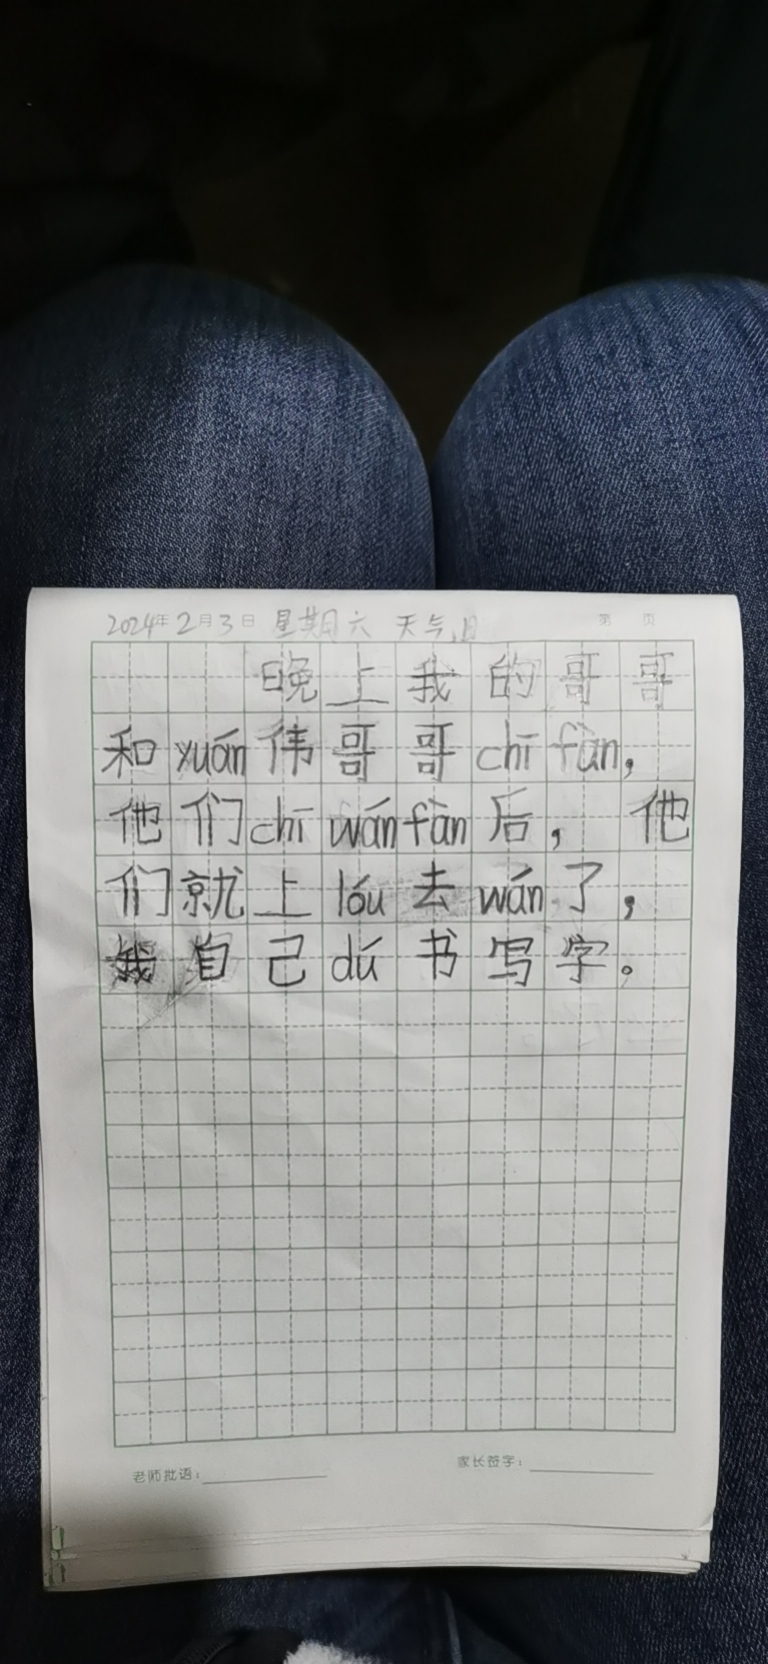 2024年2月3日 星期六 天气
第 页
晚上我的哥哥
和xuán伟哥哥chī fàn,
他们chī wán fàn后,他
们就上lóu去wán了,
我自己dú书写字。
老师批语:
家长签字: